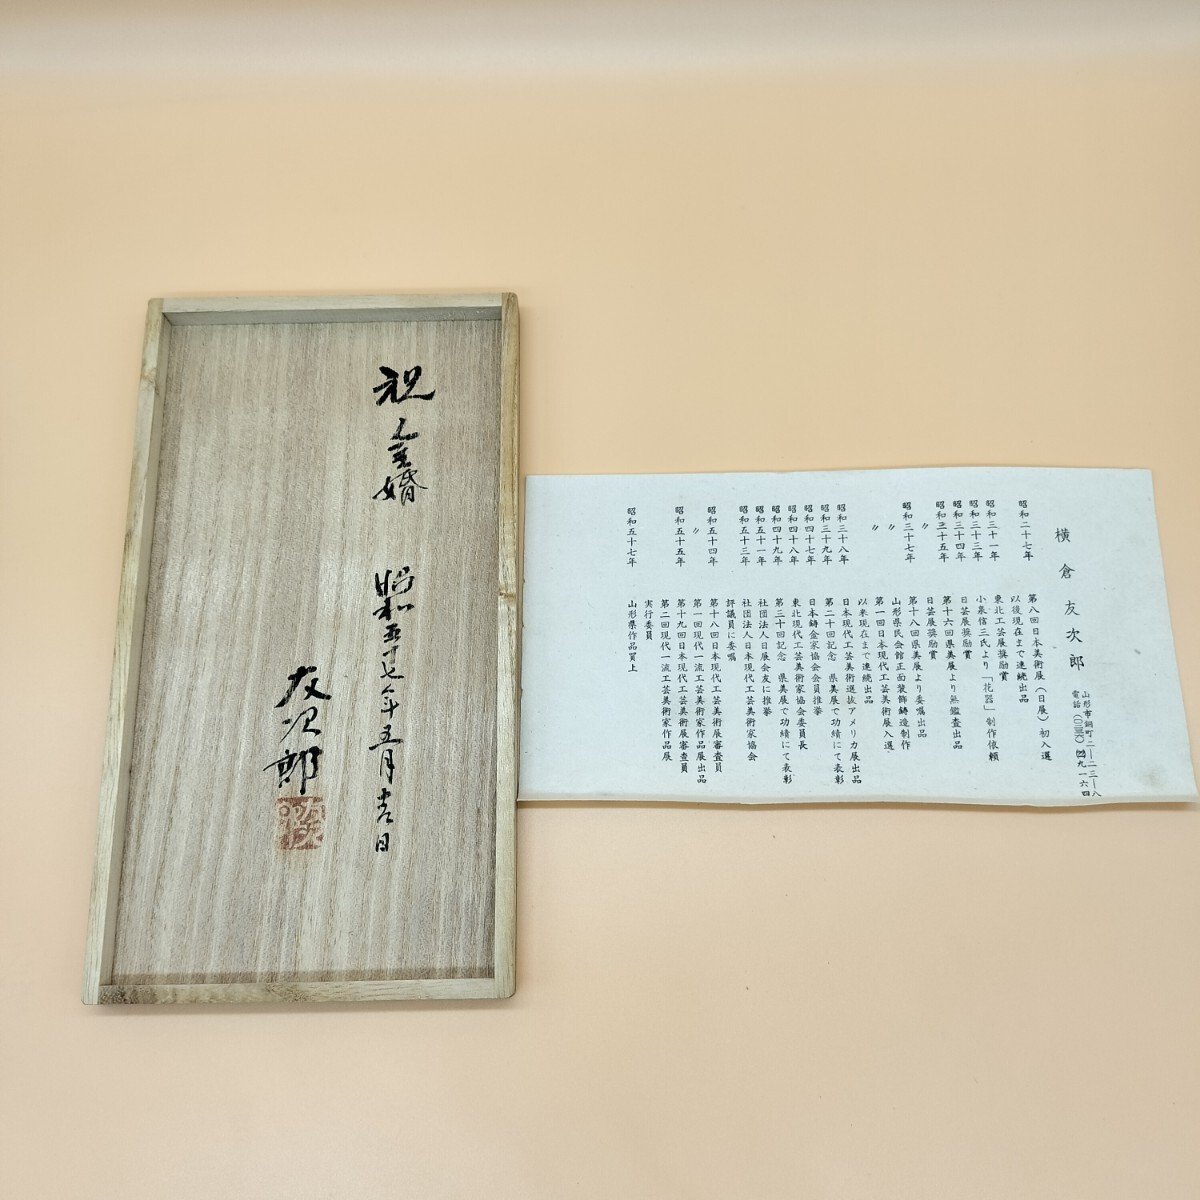 祝 金婚 昭和五十七年五月吉日
友次郎
横倉友次郎
山形市銅町二―二三―八
昭和二十七年 第八回日本美術展(日展)初入選
以後現在まで連続出品
昭和三十一年 東北工芸展奨励賞
昭和三十三年 小泉信三氏より「花器」制作依頼
昭和三十四年 日芸展奨励賞
昭和三十五年 第十六回県美展より無鑑査出品
〃 日芸展奨励賞
昭和三十七年 第十八回県美展より委嘱出品
〃 山形県民会館正面装飾鋳造制作
〃 第一回日本現代工芸美術展入選
以来現在まで連続出品
昭和三十八年 日本現代工芸美術選抜アメリカ展出品
昭和三十九年 第二十回記念 県美展で功績にて表彰
昭和四十七年 日本鋳金家協会会員推挙
昭和四十八年 東北現代工芸美術家協会委員長
昭和四十九年 第三十回記念 県美展で功績にて表彰
昭和五十一年 社団法人日展会友に推挙
昭和五十三年 社団法人日本現代工芸美術家協会
評議員に委嘱
昭和五十四年 第十八回日本現代工芸美術展審査員
〃 第一回現代一流工芸美術家作品展出品
昭和五十五年 第十九回日本現代工芸美術展審査員
第二回現代一流工芸美術家作品展
実行委員
昭和五十七年 山形県作品買上